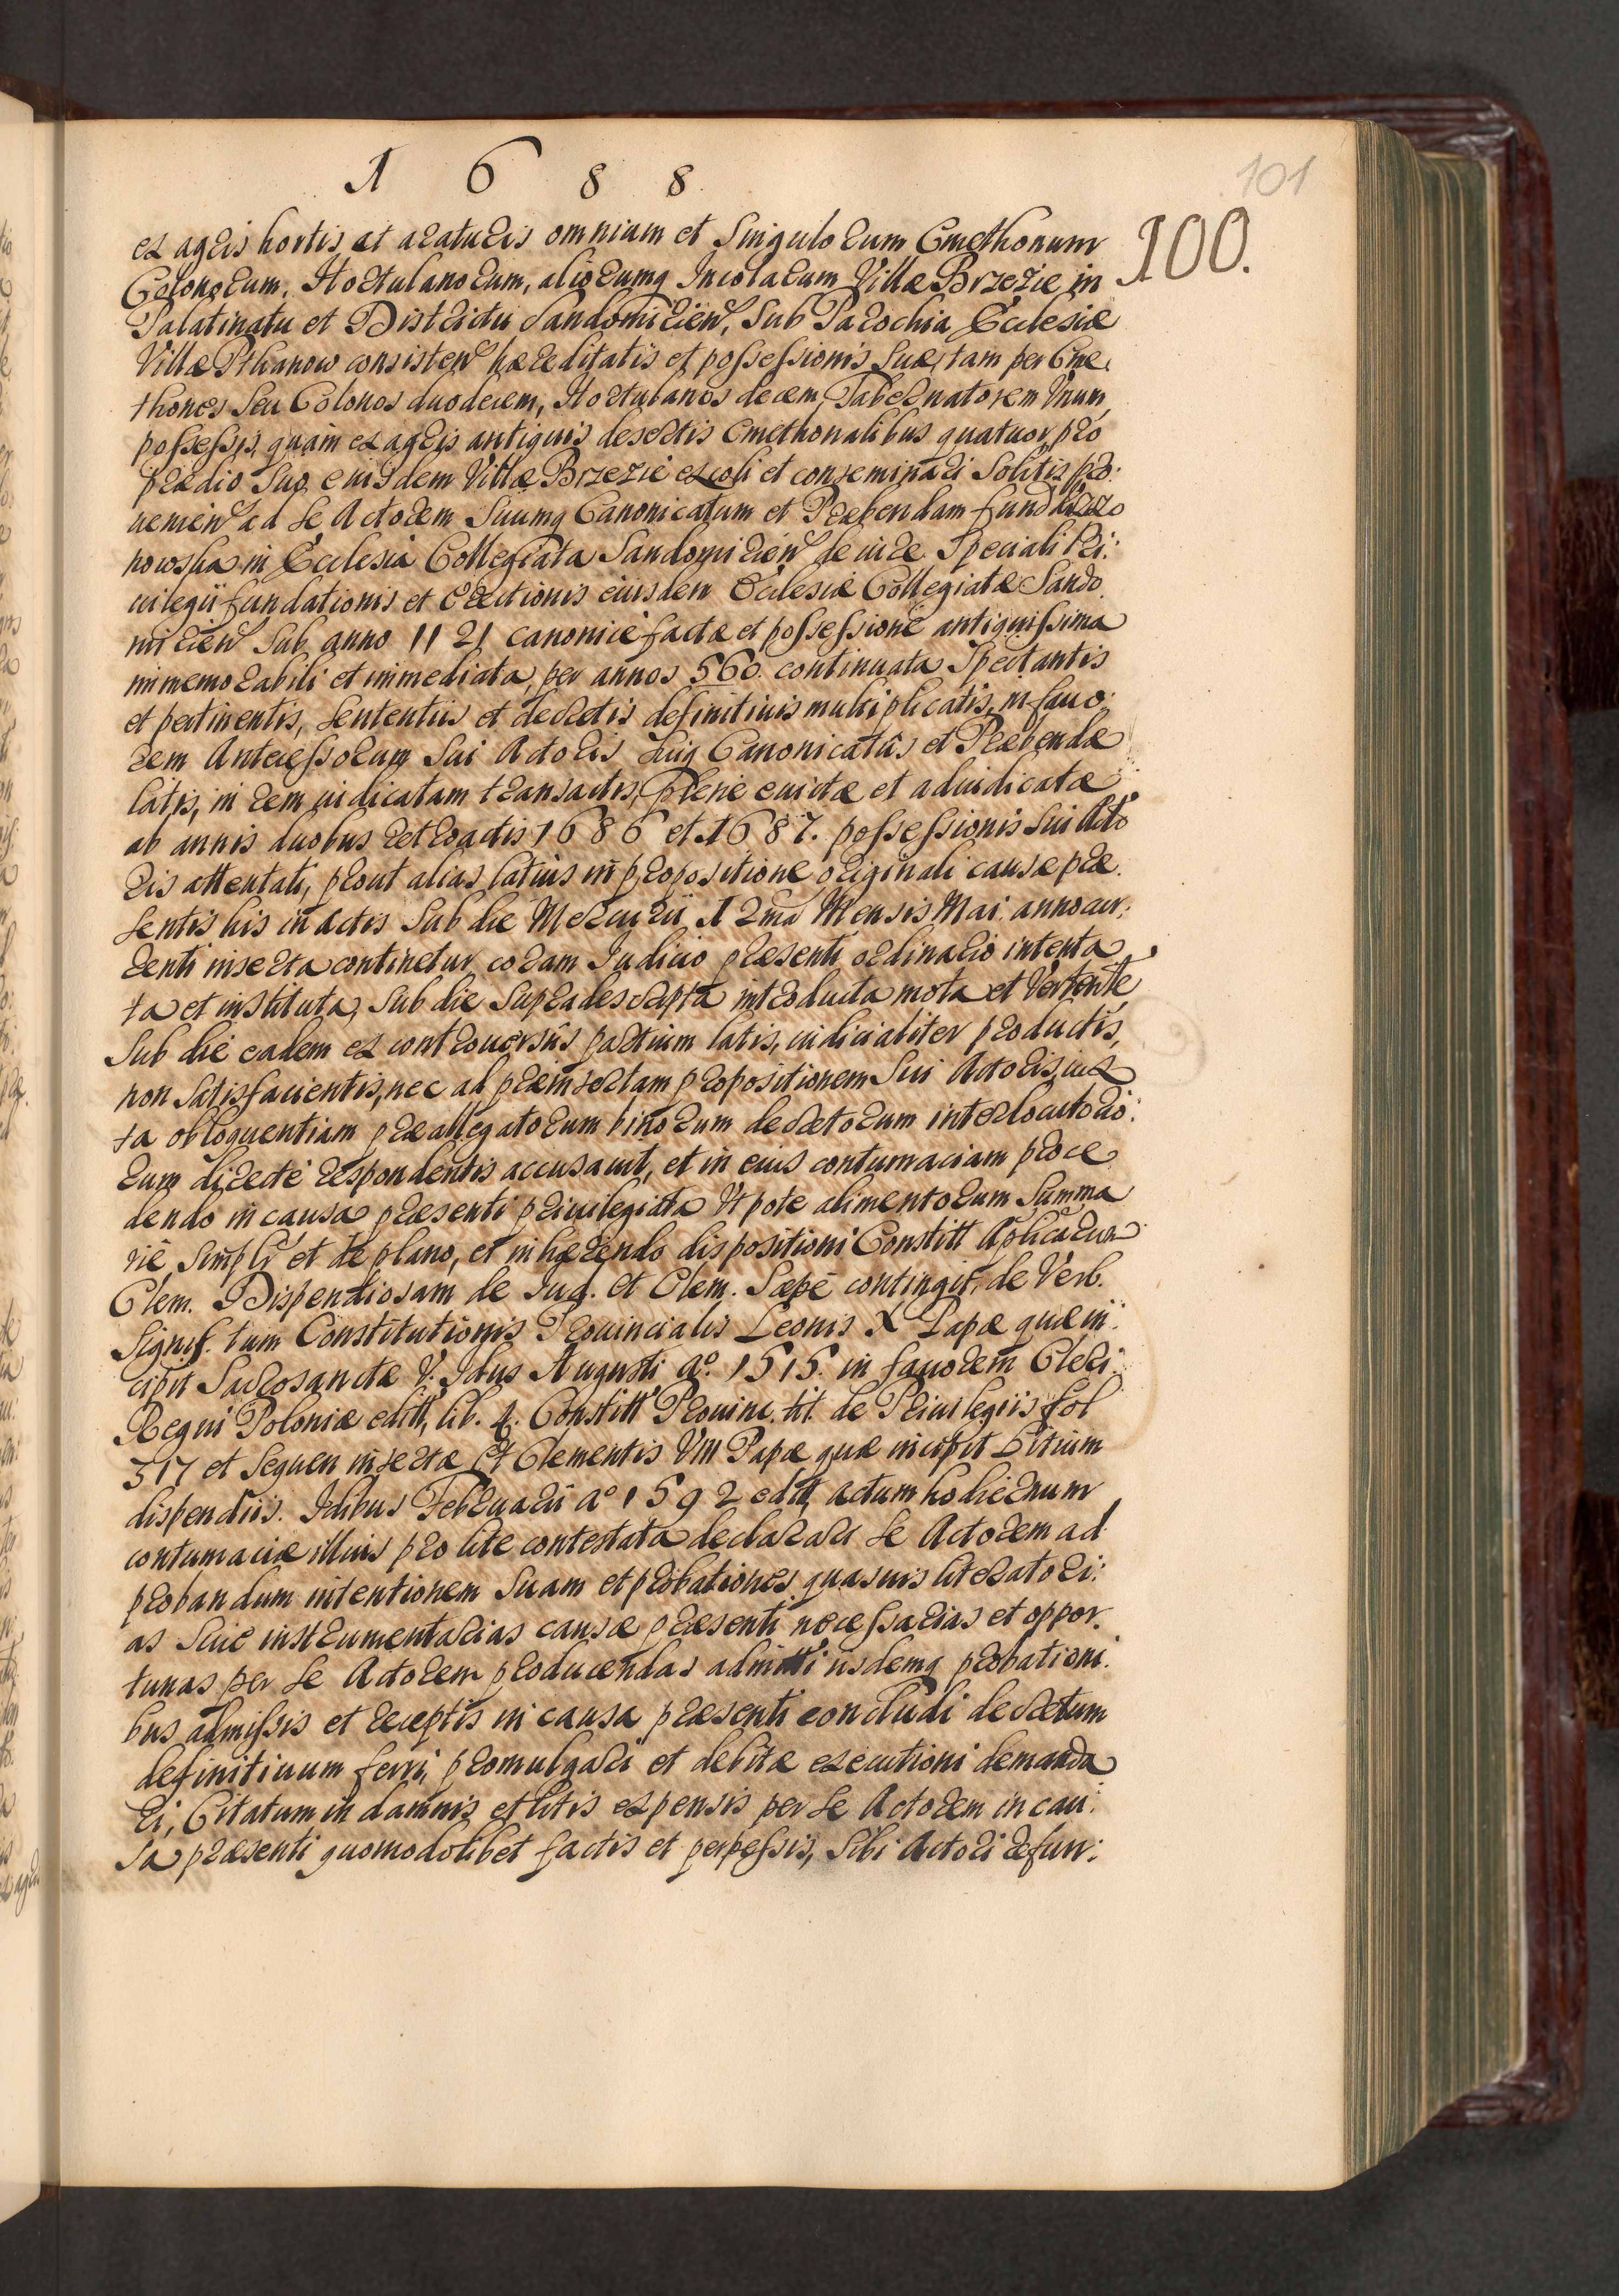 1 6 8 8
101
100.
ex agris hortis et araturis omnium et Singulorum Cmethonum
Colonorum, Hortulanorum, aliorumq Incolarum Villæ Brzezie in
Palatinatu et Districtu Sandomirien, Sub Parochia Ecclesiæ
Villæ Pthanow consisten hæreditatis et possessionis Suæ, tam per Cme
thones Seu Colonos duodecem, Hortulanos decem, Tabernatorem Vnum,
possessis, quàm ex agris antiquis desertis Cmethonalibus quatuor pro
prædio Suo eiusdem Villæ Brzezie excoli et conseminari Solitis, pro:
uenien ad Se Actorem Suumq Canonicatum et Præbendam fundi
nowska in Ecclesia Collegiata Sandomirien de iure Speciali Pri:
uilegii fundationis et Erectionis eiusdem Ecclesiæ Collegiatæ Sando
mirien Sub anno 1121 canonicè factæ et possessione antiquissima
immemorabili et immediata, per annos 560. continuata Spectantis
et pertinentis, Sententiis et decretis definitiuis multiplicatis, in fauo:
rem Antecessorum Sui Actoris Suiq Canonicatûs et Præbendæ
latis, in rem iudicatam transactis, plenè euictæ et adiudicatæ
ab annis duobus retroactis 1686 et 1687. possessionis Sui Acto
ris attentati, prout alias latius in propositione originali causæ præ
sentis his in actis Sub die Mercurii 12ma Mensis Mai anno cur:
renti inserta continetur coram Iudicio præsenti ordinario intenta
ta et instituta, Sub die Supradescripta introducta mota et Vertente
Sub die eadem ex controuersiis partium latis, iudicialiter productis,
non Satisfacientis, nec ad præinsertam propositionem Sui Actoris, iux
ta obloquentiam præallegatorum binorum decretorum interlocutorio:
rum directè respondentis accusauit, et in eius contumaciam proce
dendo in causa præsenti priuilegiata Vtpote alimentorum Summa
riè, Simplr et de plano, et inhærendo dispositioni Constitt Aplicarum
Clem. Dispendiosam de Iud. et Clem. Sæpè contingit, de Verb.
Signif. tum Constitutionis Prouincialis Leonis X Papæ quæ in:
cipit Sacrosanctæ V. Idus Augusti aº. 1515. in fauorem Cleri
Regni Poloniæ editt, lib. 4. Constitt Prouinc. tit. de Priuilegiis fol
317 et Sequen insertæ Et Clementis VIII Papæ quæ incipit Litium
dispendiis. Idibus Februarii aº 1592 editt, actum hodiernum
contumaciæ illius pro lite contestata declarari Se Actorem ad
probandum intentionem Suam et probationes quasuis literatori:
as Siue instrumentarias causæ præsenti necessarias et oppor.
tunas per Se Actorem producendas admitti iisdemq probationi:
bus admissis et receptis in causa præsenti concludi decretum
definitiuum ferri, promulgari et debitæ executioni demanda
ri, Citatum in damnis et litis expensis per Se Actorem in cau:
sa præsenti quomodolibet factis et perpessis, Sibi Actori refun: